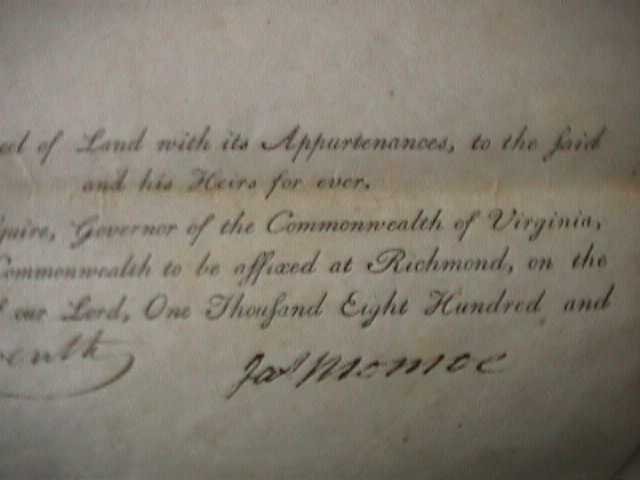 of Land with its Appurtenances, to the ſaid
and his Heirs for ever.
quire, Governor of the Commonwealth of Virginia,
Commonwealth to be affixed at Richmond, on the
our Lord, One Thouſand Eight Hundred and
enth
Jas Monroe